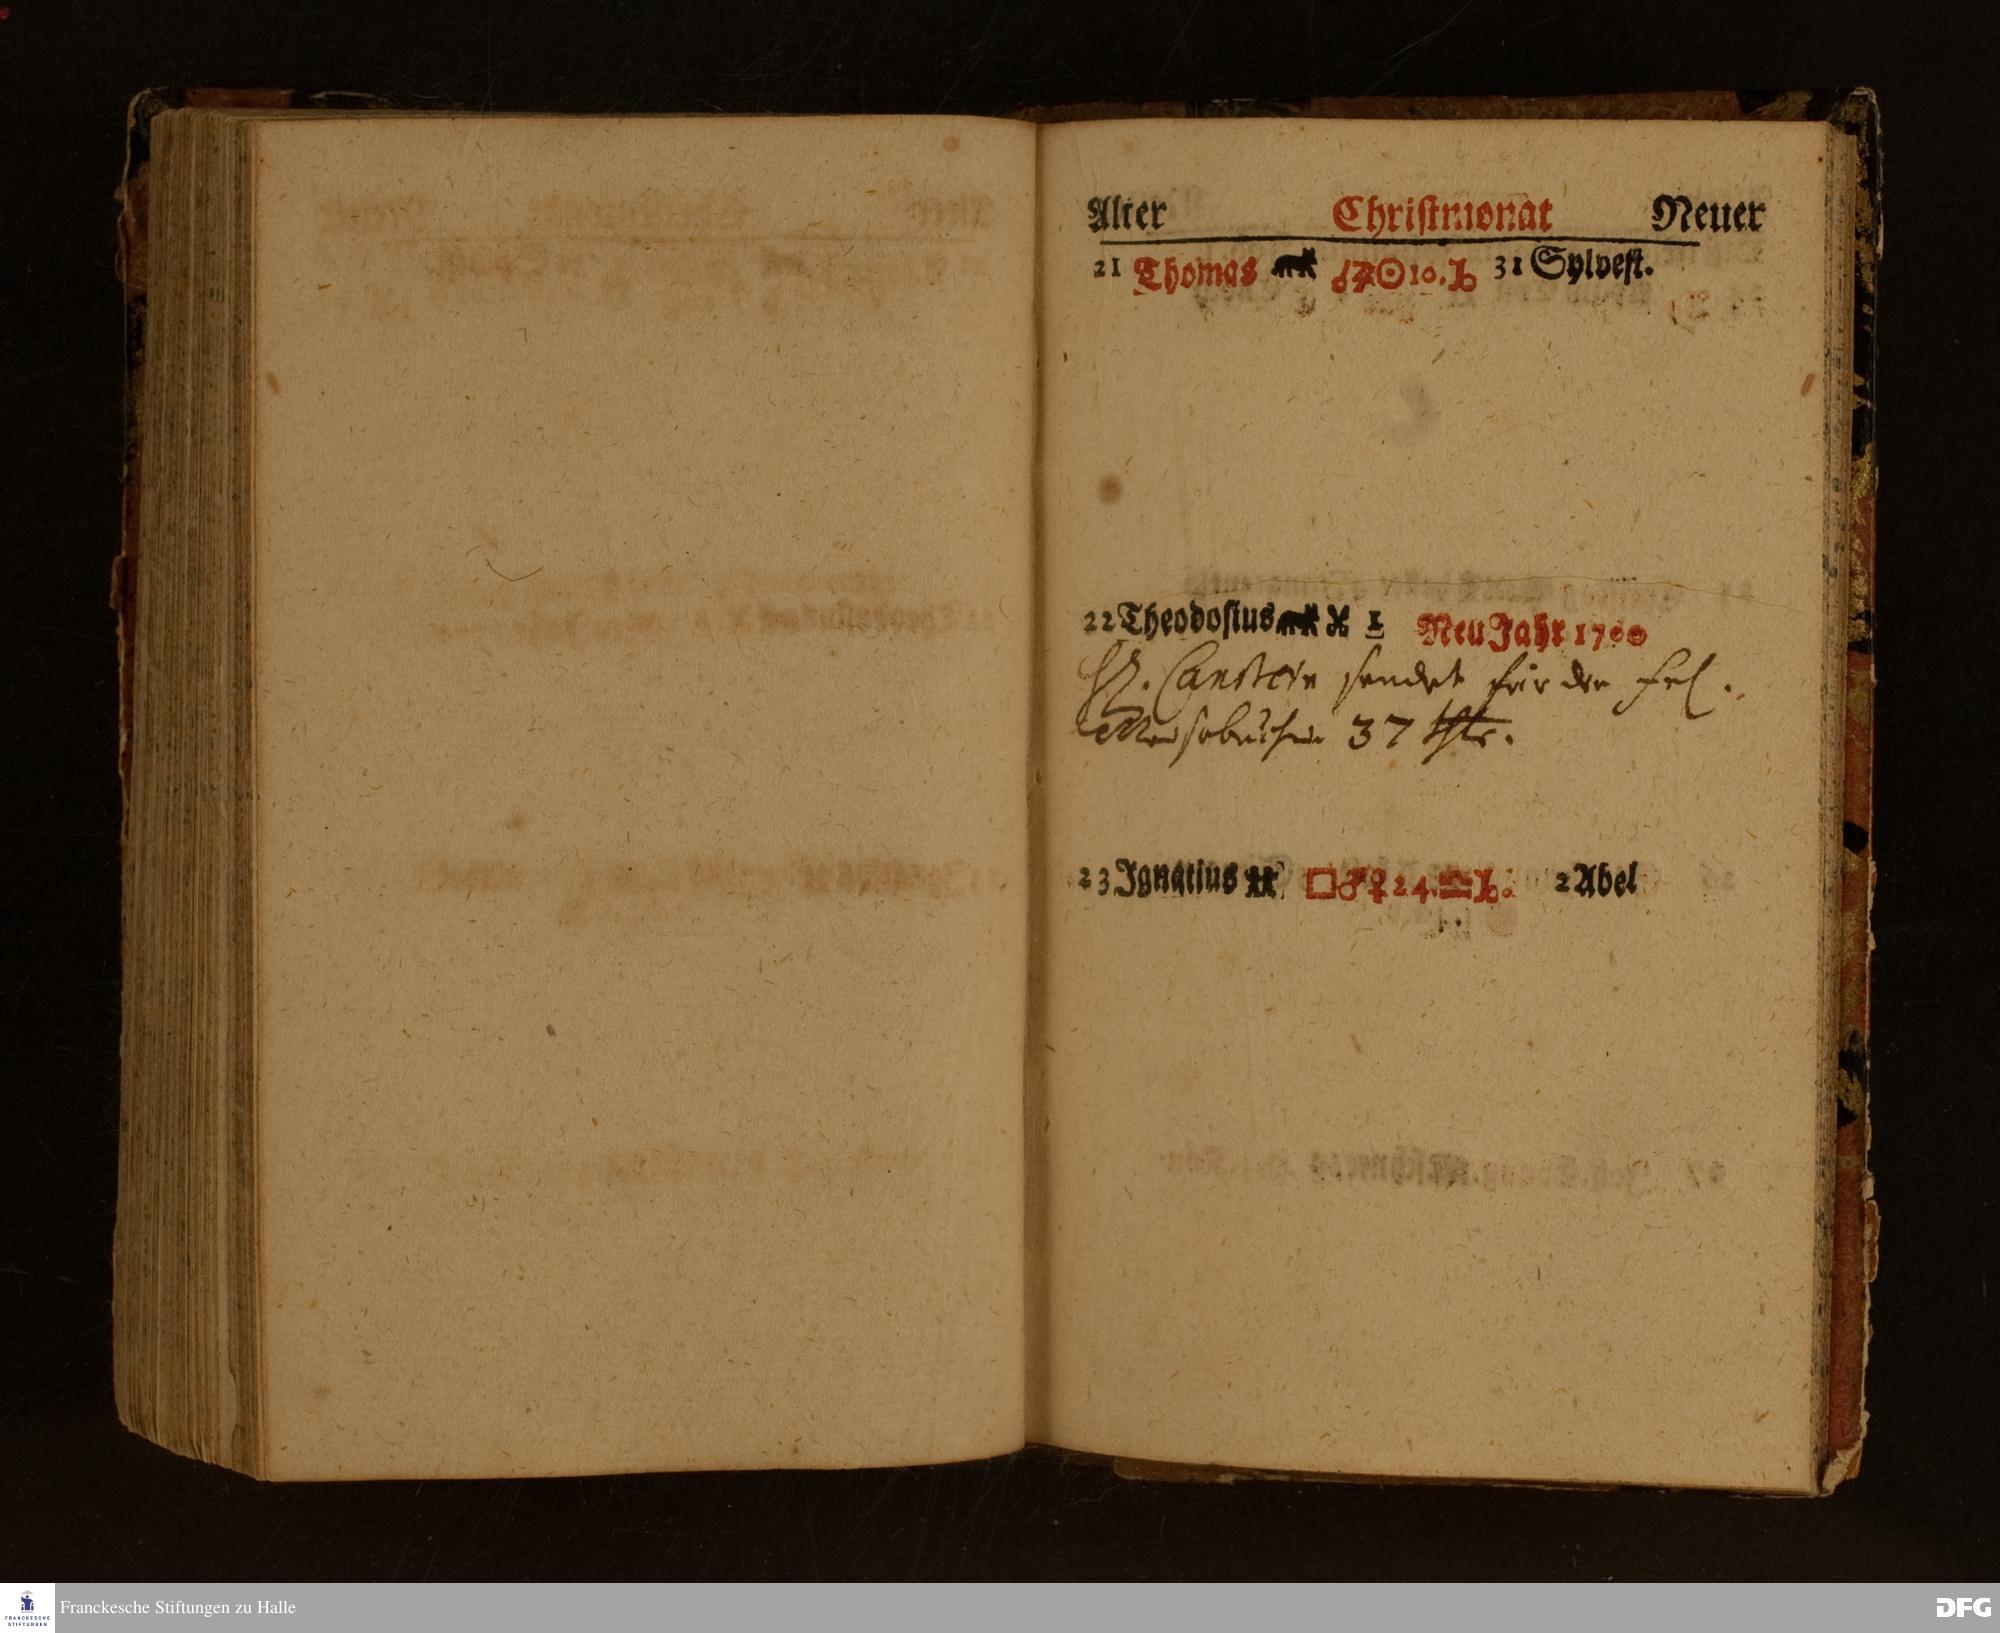 Alter Christmonat Neuer
21 Thomas ☉ 10. 31 Sylvest.
22 Theodosius 1 Neu Jahr 1700
H. Canstein sendet für den sel.
37 thlr.
23 Ignatius □♂♀ 24. ♎ 2 Abel
FRANCKESCHE
STIFTUNGEN
Franckesche Stiftungen zu Halle
DFG